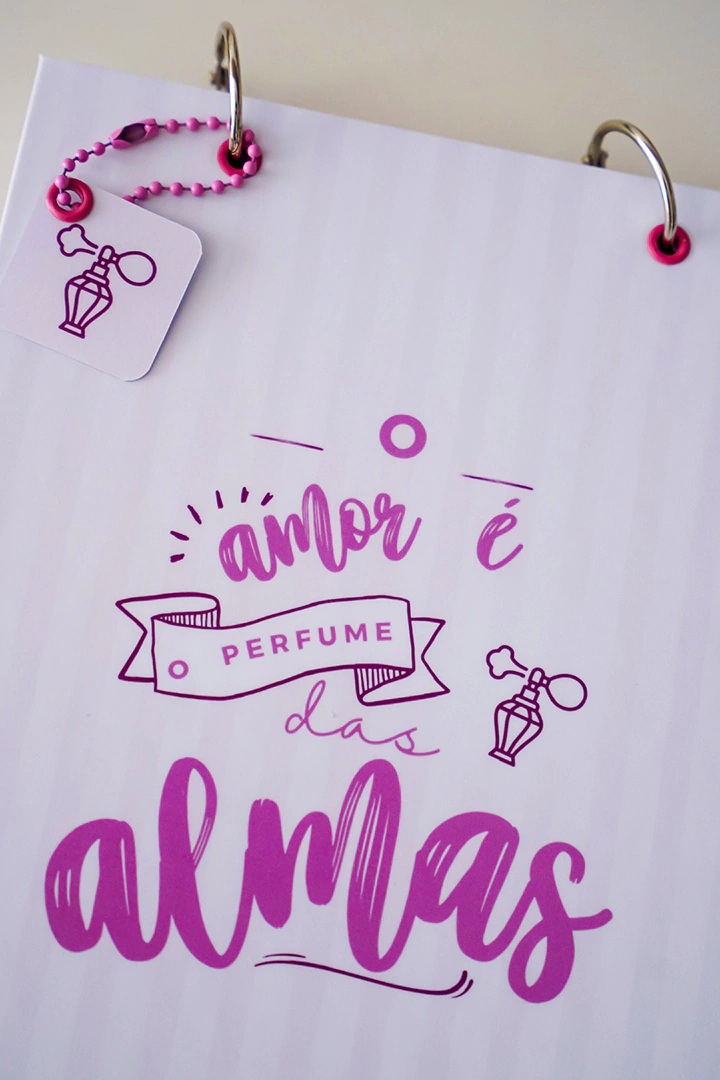 O
amor é
O PERFUME
das
almas